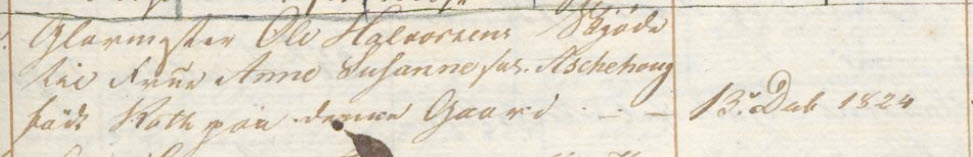 Glarmester Ole Halvorsens Skjøde
til Frue Anne Susanne sal. Aschehoug
født Roth paa denne Gaard - - 13. Dcb 1824